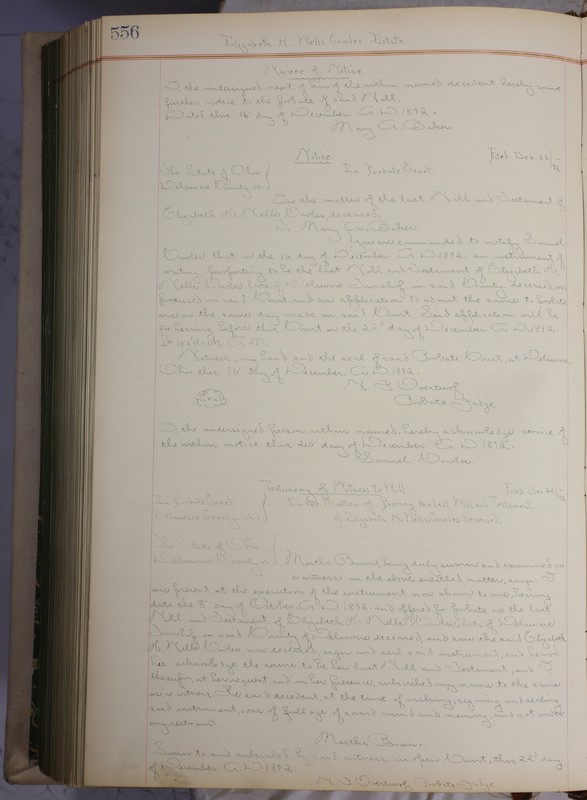 556
Elizabeth H. Wells Cowles Estate
Waiver of Notice
I, the undersigned next of kin of the within named decedent, hereby waive
further notice to the probate of said Will.
Dated this 16 day of December A.D. 1892.
Mary A. Baker
Notice
Filed Dec. 22/92
The State of Ohio
Delaware County ss
In Probate Court
In the matter of the last Will and Testament of
Elizabeth H. Wells Cowles, deceased.
To Mary A. Baker:
You are commanded to notify Samuel
Cowles that on the 16 day of December A.D. 1892, an instrument of
writing, purporting to be the last Will and Testament of Elizabeth H.
Wells Cowles late of Delaware Township in said County, deceased, was
produced in said Court, and an application to admit the same to probate
was on the same day made in said Court. Said application will be
for hearing before this Court on the 22d day of December A.D. 1892
at o'clock A.M.
Witness, my hand and the seal of said Probate Court, at Delaware
Ohio, this 16 day of December A.D. 1892.
N. F. Overturf
Probate Judge
Seal
I, the undersigned person within named, hereby acknowledge service of
the within notice this 20 day of December A.D. 1892.
Samuel Cowles
Testimony of Witness to Will
Filed Dec. 22/92
In Probate Court
Delaware County, Ohio
In the Matter of Proving the last Will and Testament
of Elizabeth H. Wells Cowles deceased
The State of Ohio
Delaware County ss
Martha Brown, being duly sworn and examined as
a witness in the above entitled matter, says: I
was present at the execution of the instrument now shown to me, bearing
date the 8 day of October A.D. 1892, and offered for probate as the last
Will and Testament of Elizabeth H. Wells Cowles, late of Delaware
Township in said County of Delaware deceased, and saw the said Elizabeth
H. Wells Cowles now deceased, sign and seal said instrument, and heard
her acknowledge the same to be her last Will and Testament, and I,
thereupon, at her request, and in her presence, subscribed my name to the same
as a witness. The said decedent, at the time of making, signing and sealing
said instrument, was of full age, of sound mind and memory, and not under
any restraint.
Martha Brown.
Sworn to and subscribed by said witness in open Court, this 22d day
of December A.D. 1892.
N. F. Overturf Probate Judge